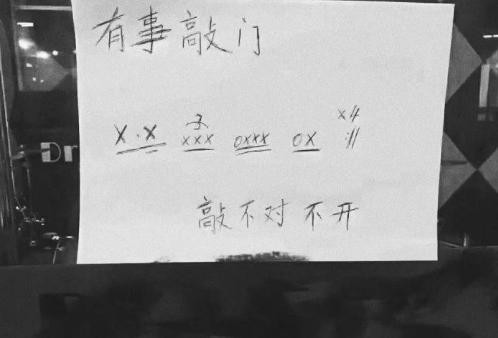 有事敲门
x4
X·X 3 XXX 0XXX 0X :||
敲不对不开
Dr